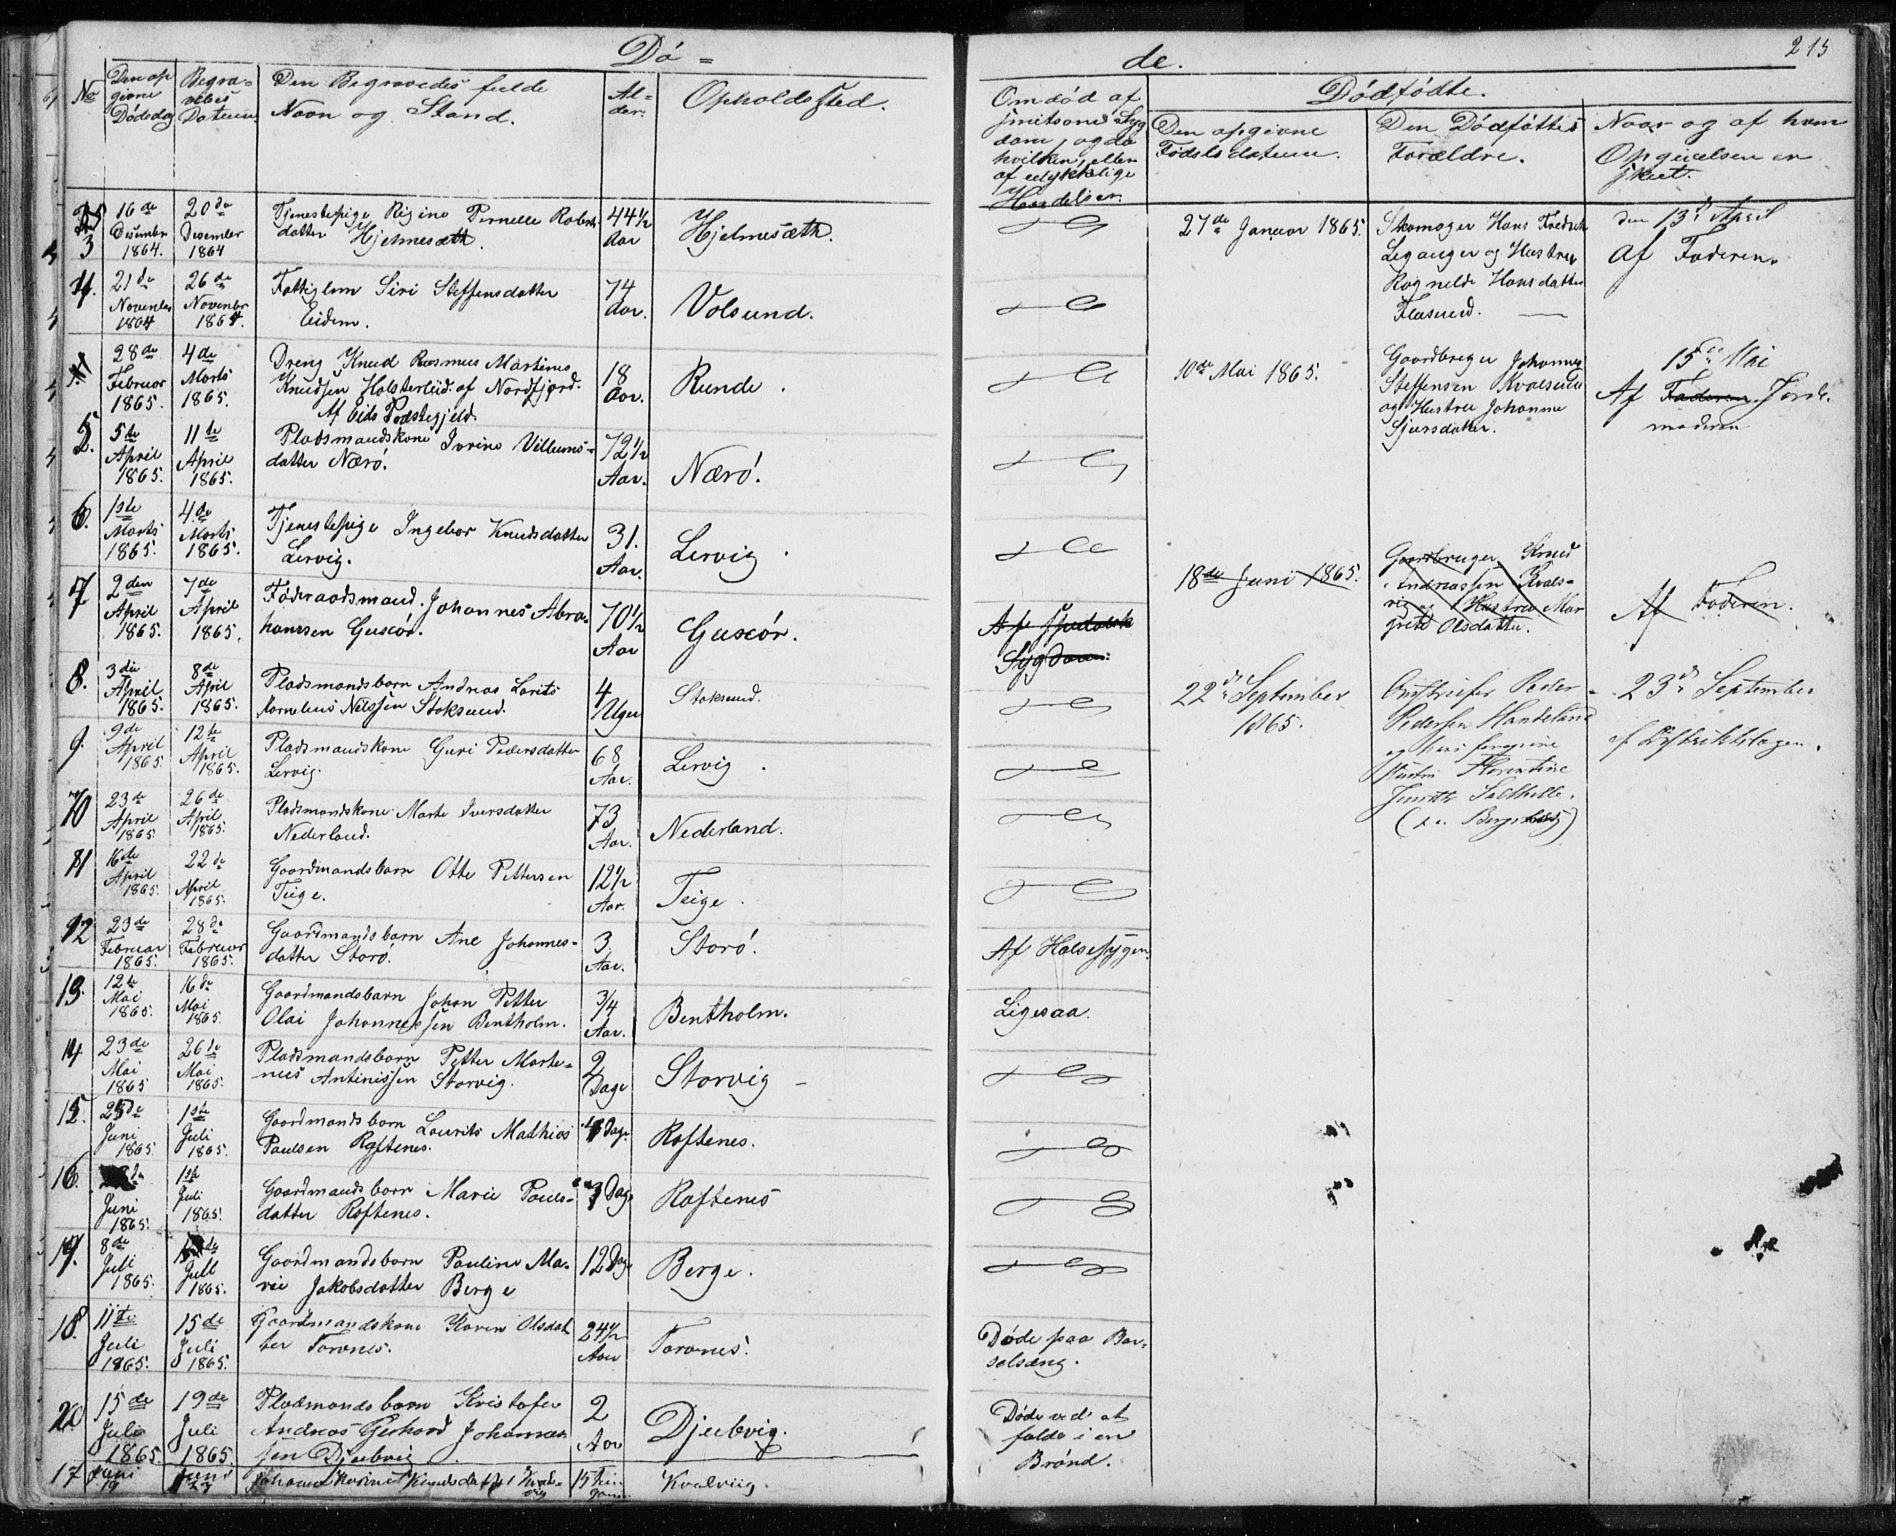 Dö = de.
215
No
Den op
givne
Dödsdag
Begra=
velses
Datum
Den Begravedes fulde
Navn og Stand.
Al=
der.
Opholdssted.
Om död af
smitsom Syg
dom, og da
hvilken, eller
af ulykkelige
Hendelser
Dödfödte.
Den opgivne
Födsels datum.
Den Dödföttes
Forældre.
Naar og af hvem
Opgivelsen er
skeet.
3
16de
Desember
1864.
20de
Desember
1864
Tjenestepige Regine Pernelle Robert
datter Hjelmesæth.
44½
Aar
Hjelmesæth.
4.
21de
November
1864
26de
Novembr
1864.
Fattiglem Siri Steffensdatter
Eidem.
74
Aar.
Volsund.
28de
Februar
1865.
4de
Marts
1865.
Dreng Knud Rasmus Martinus
Knudsen Holsterlid. af Nordfjord.
Af Eids Præstegjeld.
18
Aar.
Runde.
5.
5te
April
1865.
11de
April
1865.
Pladsmandskone Ivrine Villums=
datter Nærö.
72½
Aar.
Nærö.
6.
1ste
Marts
1865.
4de
Marts
1865.
Tjenestepige Ingebor Knudsdatter
Lervig.
31.
Aar.
Lervig
7
2den
April
1865.
7de
April
1865.
Föderaadsmand. Johannes Abra=
hamsen Guscör.
70½
Aar
Guscör.
Af Spedalsk
Sygdom.
8.
3die
April
1865.
8de
April
1865.
Pladsmandsbarn Andreas Lorits
Kornelius Nilssen Stoksund.
4
Uger
Stoksund.
9.
9de
April
1865
12te
April
1865.
Pladsmandskone Guri Pedersdatter
Lervig.
68
Aar.
Lervig.
10
23de
April
1865
26de
April
1865.
Pladsmandskone Marte Iversdatter
Nederland.
73
Aar.
Nederland.
11
16de
April
1865.
22de
April
1865.
Gaardmandsbarn Otte Pettersen
Teige.
12½
Aar.
Teige.
12
23de
Februar
1865.
28de
Februar
1865.
Gaardmandsbarn Ane Johannes=
datter Storö.
3
Aar.
Storö.
Af Halsesygen.
13.
12te
Mai
1865.
16de
Mai
1865
Gaardmandsbarn Johan Petter
Olai Johannessen Bentholm.
3/4
Aar.
Bentholm.
Ligesaa.
14
23de
Mai
1865
26de
Mai
1865.
Pladsmandsbarn Petter Marte=
nus Antinissen Storvig.
2
Dage
Storvig
15.
25de
Juni
1865
1ste
Juli
1865.
Gaardmandsbarn Laurits Mathias
Paulsen Röftenes.
Dage.
Röftenes.
16.
Juni
1865.
1ste
Juli
1865.
Gaardmandsbarn Marie Pouls=
datter Röftenes.
Dage
Röftenes
19.
8de
Juli
1865.
Juli
1865.
Gaardmandsbarn Pauline Ma=
rie Jakobsdatter Berge
12 Dage
Berge.
18.
11te
Juli
1865.
15de
Juli
1865.
Gaardmandskone Karen Olsdat
ter Torvnes.
24½
Aar
Torvnes.
Döde paa Bar=
selsæng.
20
15de
Juli
1865
19de
Juli
1865.
Pladsmandsbarn Kristofer
Andreas Gerhard Johannes
sen Djubvig
2
Aar
Djubvig.
Döde ved at
falde i en
Brönd.
17
Juni
19
Juni
Knudsdatter
15
Kvalviig.
27de Januar 1865.
Skomager Hans Fredrik
Leganger og Hustru
Ragnelde Hansdatter
Flusund.
den 13de April
af Faderen.
10de Mai 1865.
Gaardbruger Johannes
Steffensen Kvalsund
og Hustru Johanne
Sjursdatter.
15de Mai
Af Faderen. Jorde.
moderen
18de Juni 1865.
Gaardbruger Knud
Andreassen Kvals=
vig og Hustru Mar
grete Olsdatter.
Af Faderen.
22de September
1865.
Peder
Pedersen Handeland
og hans
Hustru Florentine
23de September
af Distriktslægen.